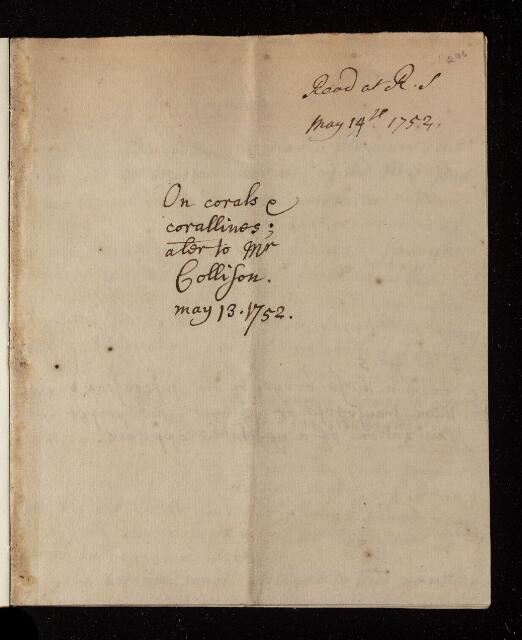 Read at R. S
may 14th. 1752.
On corals &
corallines;
a ler to Mr
Collison.
may 13. 1752.